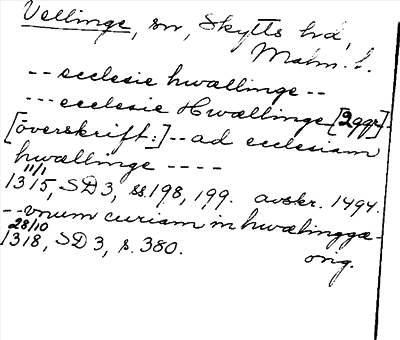 Vellinge, sn, Skytts hd,
Malm. l.
-- ecclesie hwællinge --
--- ecclesie Hwællinge [2ggr]-
[överskrift:] -- ad ecclesiam
hwællinge ----
11/1
1315, SD 3, ss. 198, 199. avskr. 1494.
-- vnum curiam in hwælinggæ -
28/10
1318, SD 3, s. 380. orig.